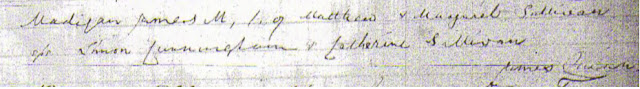 Madigan James M, l. of Matthew & Margaret Sullivan
sps Simon Cunningham & Catherine Sullivan
James